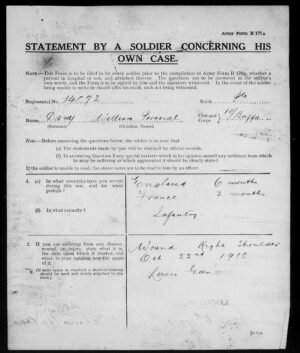 Army Form B 179a
STATEMENT BY A SOLDIER CONCERNING HIS
OWN CASE.
NOTE.—This Form is to be filled in by every soldier prior to the compilation of Army Form B 179a, whether a
patient in hospital or not, and attached thereto. The questions are to be answered in the soldier's
own words, and the Form to be signed by him and the signature witnessed. In the event of the soldier
being unable to write he should affix his mark, such act being witnessed.
Regimental No. Rank Pte
Name William Unit and Corps
(Surname) (Christian Names)
Before answering the questions below, the soldier is to note that
(a) The statements made by him will be checked by official records.
(b) In answering Question 2 any special matters which in his opinion caused any resultant loss which
he may be suffering or which aggravated it should be clearly stated
If the soldier is unable to read, the above notes are to be read to him by an officer.
1. (a) In what countries have you served during this war, and for what periods?
England 6 months
France 3 months
(b) In what capacity?
Infantry
2. If you are suffering from any disease, wound, or injury, state what it is, the date upon which it started, and what, in your opinion, was the cause of it.
Wound Right Shoulder
Oct 22nd 1918